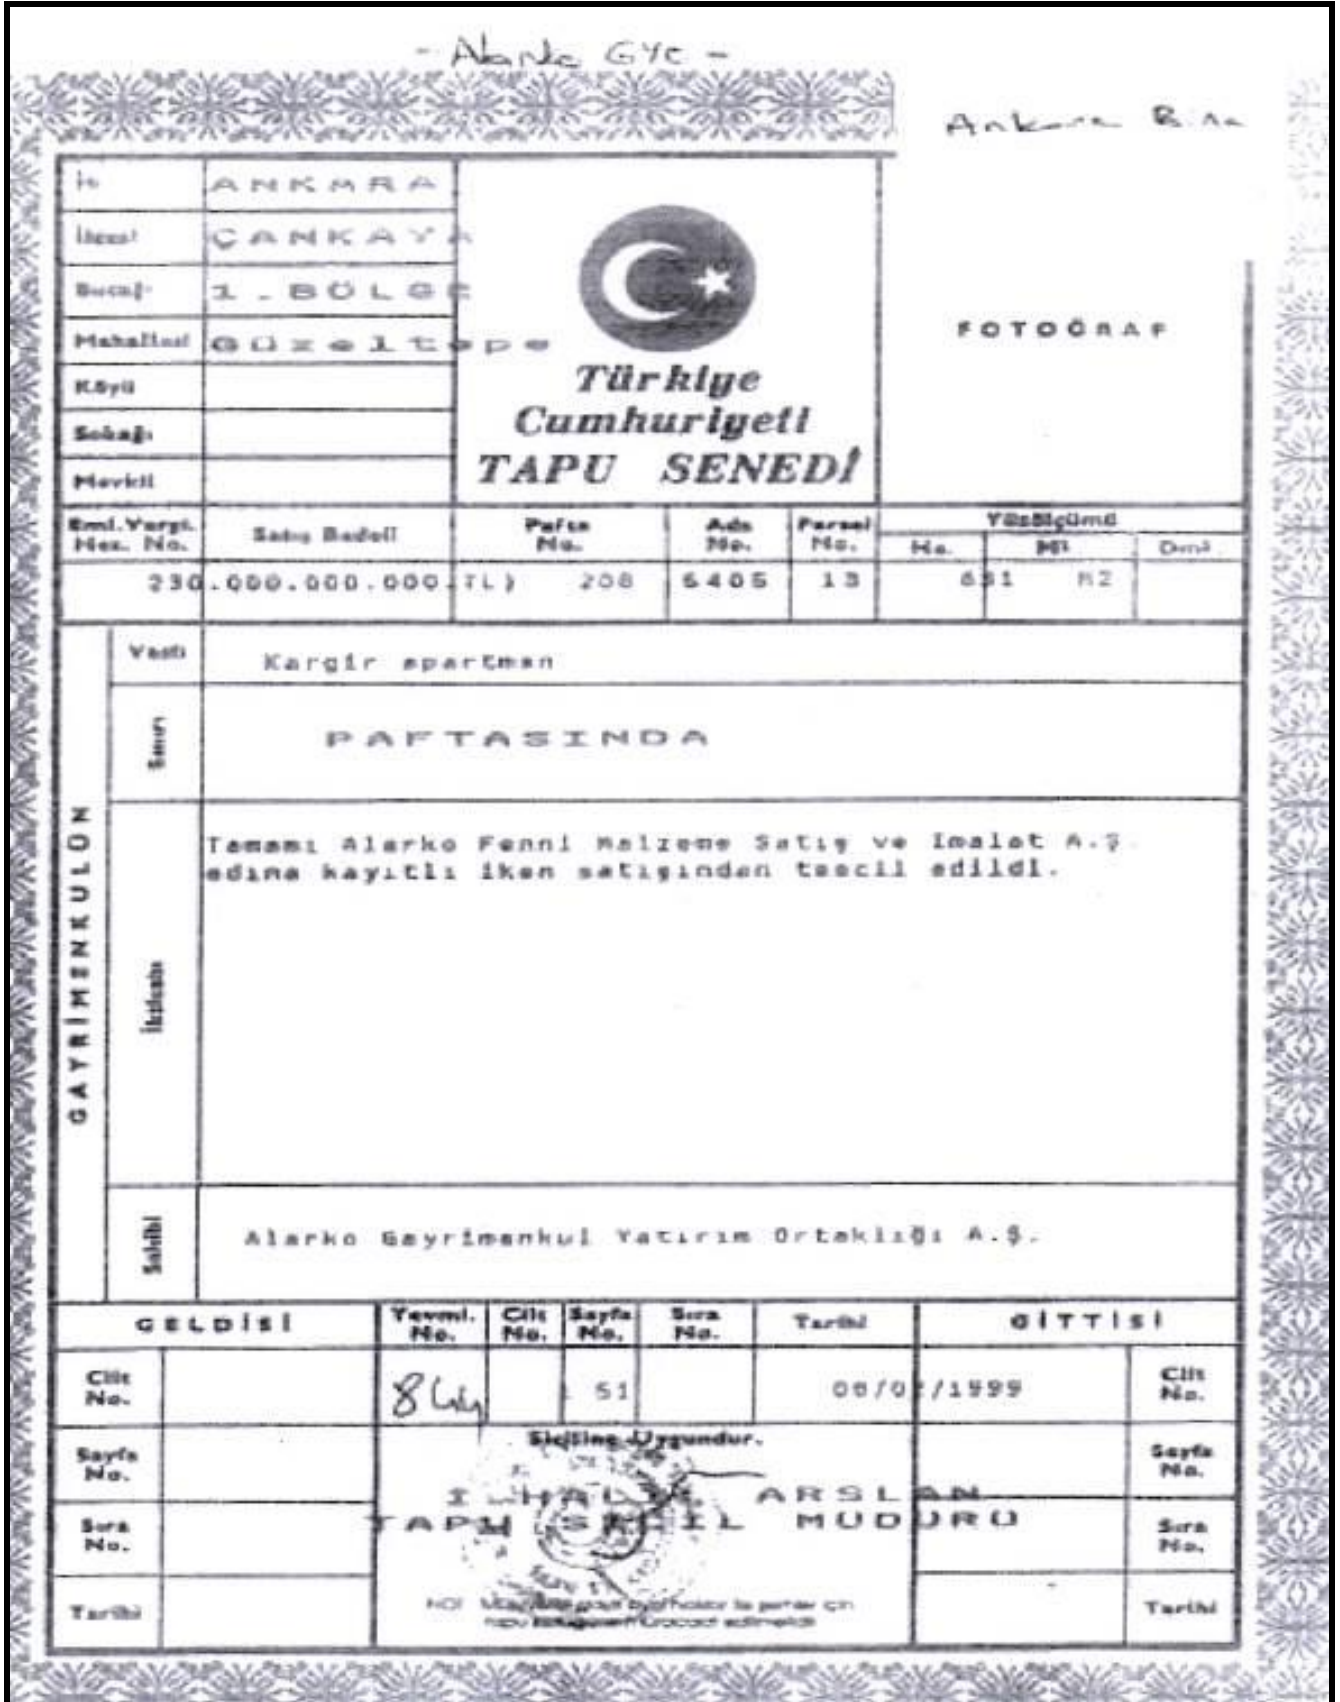 - Alarko GYO -
Ankara Bina
İli ANKARA
İlçesi ÇANKAYA
Bucağı 1.BÖLGE
Mahallesi Güzeltepe
Köyü
Sokağı
Mevkii
Türkiye
Cumhuriyeti
TAPU SENEDİ
FOTOĞRAF
Satış Bedeli
Pafta No.
Ada No.
Parsel No.
Yüzölçümü
Ha. M² Dm²
230.000.000.000.TL) 208 6405 13 M2
GAYRİMENKULÜN
Vasfı Kargir apartman
Sınırı PAFTASINDA
İktisabı
Tamamı Alarko Fenni Malzeme Satış ve İmalat A.Ş.
adına kayıtlı iken satışından tescil edildi.
Sahibi Alarko Gayrimenkul Yatırım Ortaklığı A.Ş.
GELDİSİ
Yevmi. No.
Cilt No.
Sayfa No.
Sıra No.
Tarihi
GİTTİSİ
Cilt No.
844 51
Cilt No.
Siciline Uygundur.
Sayfa No.
Sayfa No.
ARSLAN
TAPU SİCİL MÜDÜRÜ
Sıra No.
Sıra No.
Tarihi
Tarihi